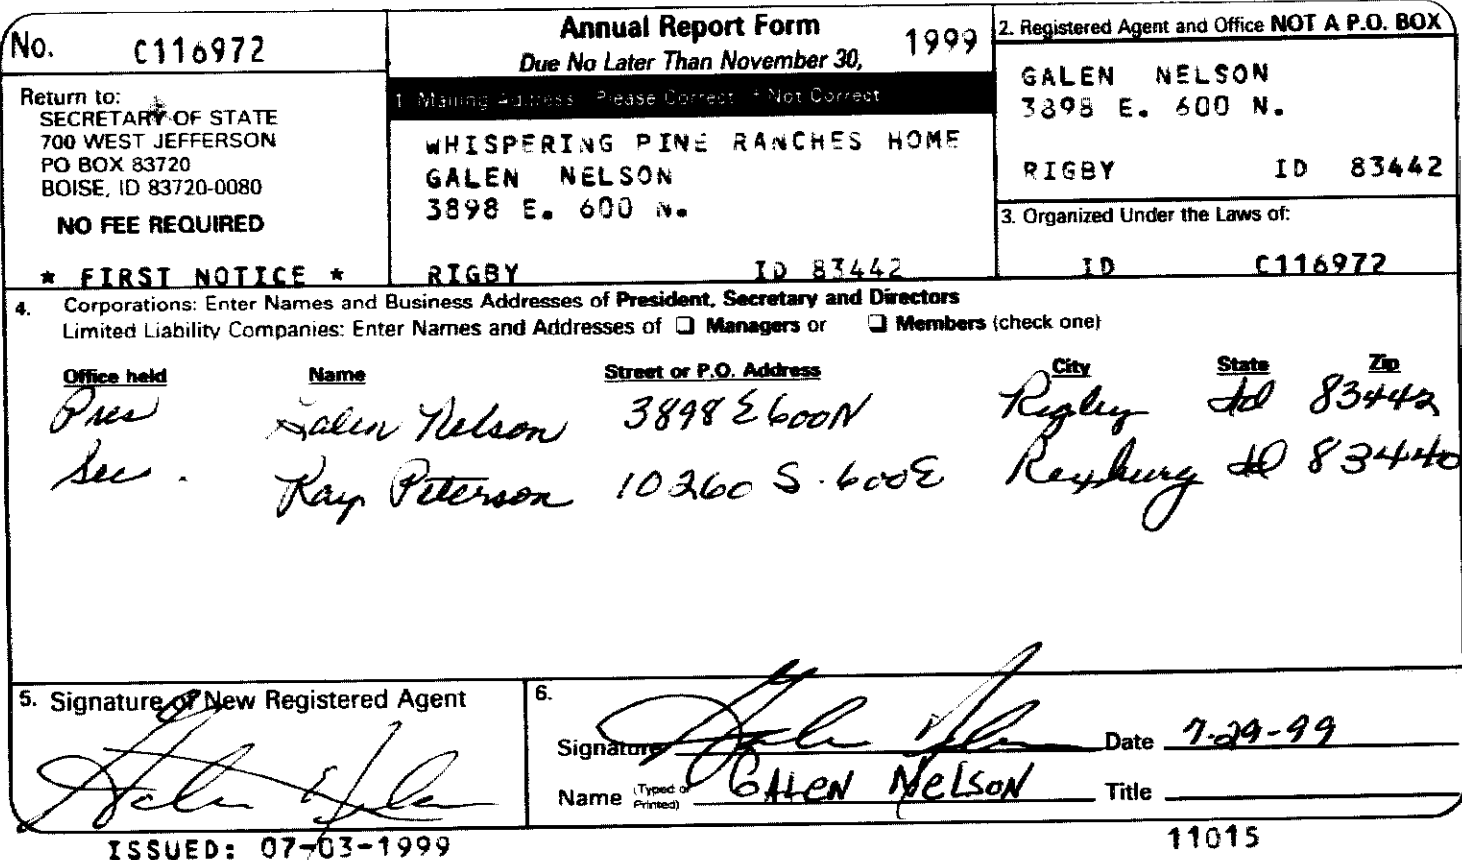 No. C116972
Annual Report Form 1999
Due No Later Than November 30,
Return to:
SECRETARY OF STATE
700 WEST JEFFERSON
PO BOX 83720
BOISE, ID 83720-0080
NO FEE REQUIRED
* FIRST NOTICE *
1 Mailing Address Please Correct Not Correct
WHISPERING PINE RANCHES HOME
GALEN NELSON
3898 E. 600 N.
RIGBY ID 83442
2. Registered Agent and Office NOT A P.O. BOX
GALEN NELSON
3898 E. 600 N.
RIGBY ID 83442
3. Organized Under the Laws of:
ID C116972
4. Corporations: Enter Names and Business Addresses of President, Secretary and Directors
Limited Liability Companies: Enter Names and Addresses of ❑ Managers or ❑ Members (check one)
Office held Name Street or P.O. Address City State Zip
Pres Galen Nelson 3898 E 600N Rigby Id 83442
Sec. Kay Peterson 10260 S. 600E Rexburg Id 83440
5. Signature of New Registered Agent
Galen Nelson
6.
Signature Galen Nelson Date 7-29-99
Name (Typed or Printed) GALEN NELSON Title
ISSUED: 07-03-1999
11015